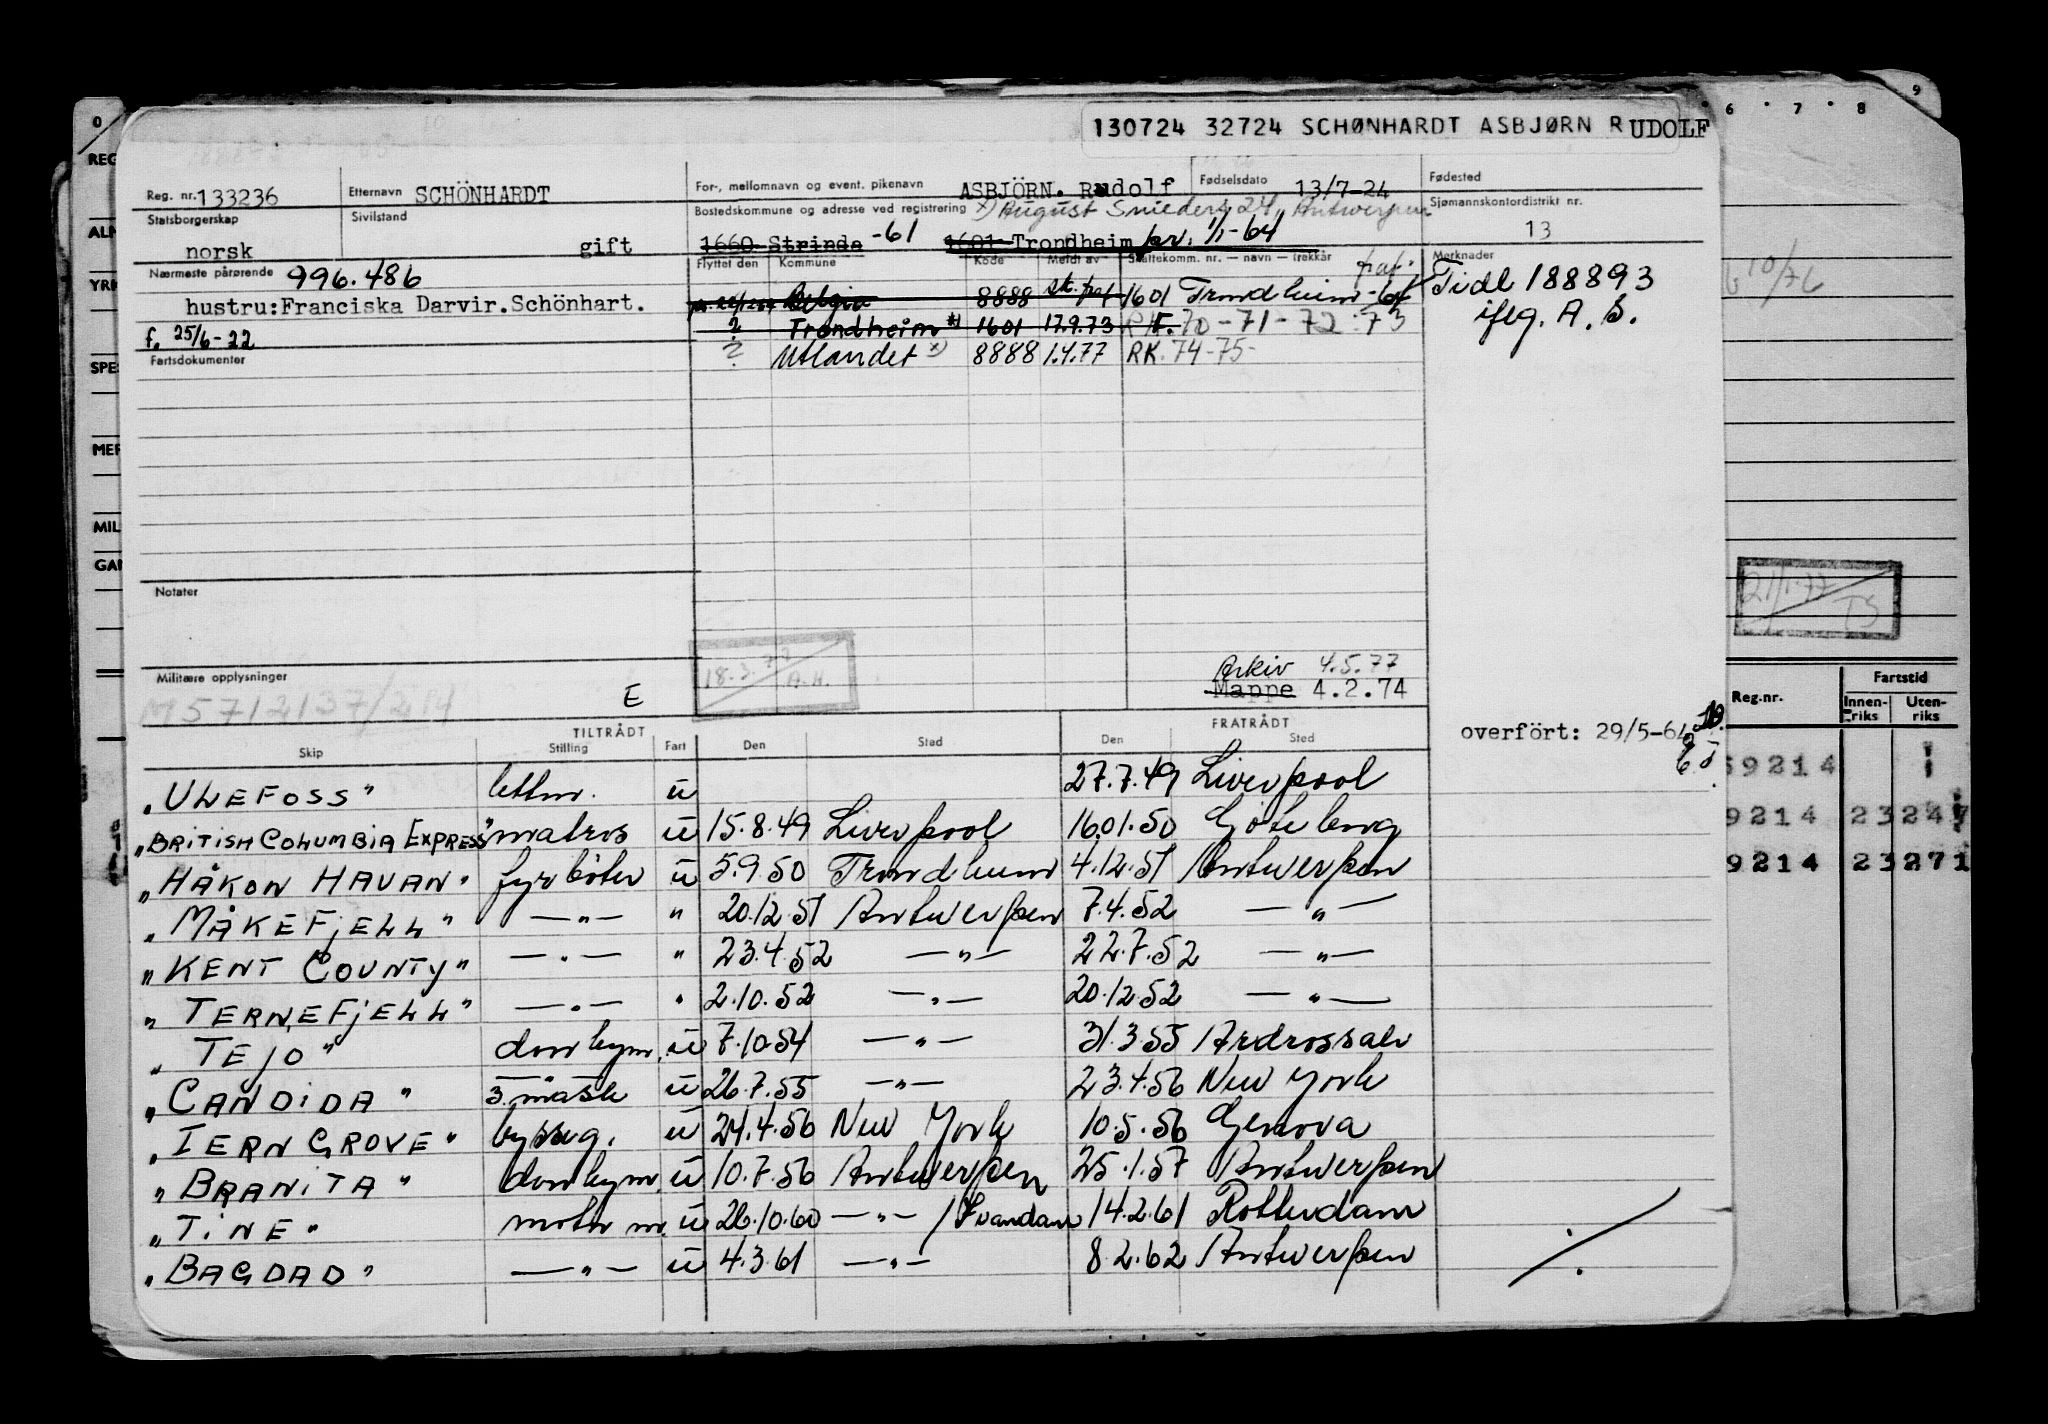 130724 32724 SCHØNHARDT ASBJØRN RUDOLF
6 7 8 9
0
Reg. nr. 133236 Etternavn SCHÖNHARDT For-, mellomnavn og event. pikenavn ASBJÖRN. Rudolf Fødselsdato 13/7-24 Fødested
Statsborgerskap norsk Sivilstand gift Bostedskommune og adresse ved registrering x) August Snieders 24, Antwerpen Sjømannskontordistrikt nr. 13
1660 Strinda -61 1601 Trondheim pr. 1/1-64
Nærmeste pårørende 996.486 Flyttet den Kommune Kode Meldt av Skattekomm. nr. — navn — trekkår Merknader
hustru:Franciska Darvir.Schönhart. Belgia 8888 1601 Trondheim-64 Tidl 188893
f. 25/6-22 ? Trondheim 1601 17.9.73 70-71-72-73 iflg. A. S.
Fartsdokumenter ? Utlandet x) 8888 1.4.77 RK. 74-75-
10/76
REG
ALM
YRK
SPES
MER
MIL
GAN
Notater
21/1-77 TS
18.3.77 A.H.
Militære opplysninger
M5712137/214 E
Arkiv 4.5.77
Mappe 4.2.74
TILTRÅDT FRATRÅDT
Skip Stilling Fart Den Sted Den Sted
overfört: 29/5-64
Reg.nr. Fartstid
Innen-riks Uten-riks
"ULEFOSS" lettm. u 27.7.49 Liverpool
"BRITISH COLUMBIA EXPRESS" matros u 15.8.49 Liverpool 16.01.50 Göteborg
"HÅKON HAUAN" fyrböter u 5.9.50 Trondheim 4.12.51 Antwerpen
"MÅKEFJELL" —"— " 20.12.51 Antwerpen 7.4.52 —"—
"KENT COUNTY" —"— " 23.4.52 —"— 22.7.52 —"—
"TERNEFJELL" —"— " 2.10.52 —"— 20.12.52 —"—
"TEJO" donkym. u 7.10.54 —"— 31.3.55 Ardrossan
"CANDIDA" 3. mask u 26.7.55 —"— 23.4.56 New York
"IERN GROVE" bysseg. u 24.4.56 New York 10.5.56 Genova
"BRANITA" donkym. u 10.7.56 Antwerpen 25.1.57 Antwerpen
"TINE" motorm. u 26.10.60 —"— 14.2.61 Rotterdam
"BAGDAD" —"— u 4.3.61 —"— 8.2.62 Antwerpen
59214
9214 23247
9214 23271